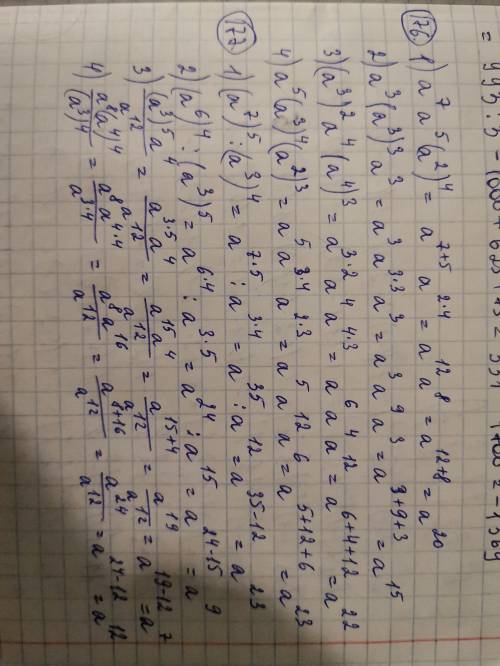 176
1) a⁷a⁵(a²)⁴ = a⁷⁺⁵a²·⁴ = a¹²a⁸ = a¹²⁺⁸ = a²⁰
2) a³(a³)³a³ = a³a³·³a³ = a³a⁹a³ = a³⁺⁹⁺³ = a¹⁵
3) (a³)²a⁴(a⁴)³ = a³·²a⁴a⁴·³ = a⁶a⁴a¹² = a⁶⁺⁴⁺¹² = a²²
4) a⁵(a³)⁴(a²)³ = a⁵a³·⁴a²·³ = a⁵a¹²a⁶ = a⁵⁺¹²⁺⁶ = a²³
177
1) (a⁷)⁵ : (a³)⁴ = a⁷·⁵ : a³·⁴ = a³⁵ : a¹² = a³⁵⁻¹² = a²³
2) (a⁶)⁴ : (a³)⁵ = a⁶·⁴ : a³·⁵ = a²⁴ : a¹⁵ = a²⁴⁻¹⁵ = a⁹
3) (a³)⁵a⁴/a¹² = a³·⁵a⁴/a¹² = a¹⁵a⁴/a¹² = a¹⁵⁺⁴/a¹² = a¹⁹/a¹² = a¹⁹⁻¹² = a⁷
4) a⁸(a⁴)⁴/(a³)⁴ = a⁸a⁴·⁴/a³·⁴ = a⁸a¹⁶/a¹² = a⁸⁺¹⁶/a¹² = a²⁴/a¹² = a²⁴⁻¹² = a¹²